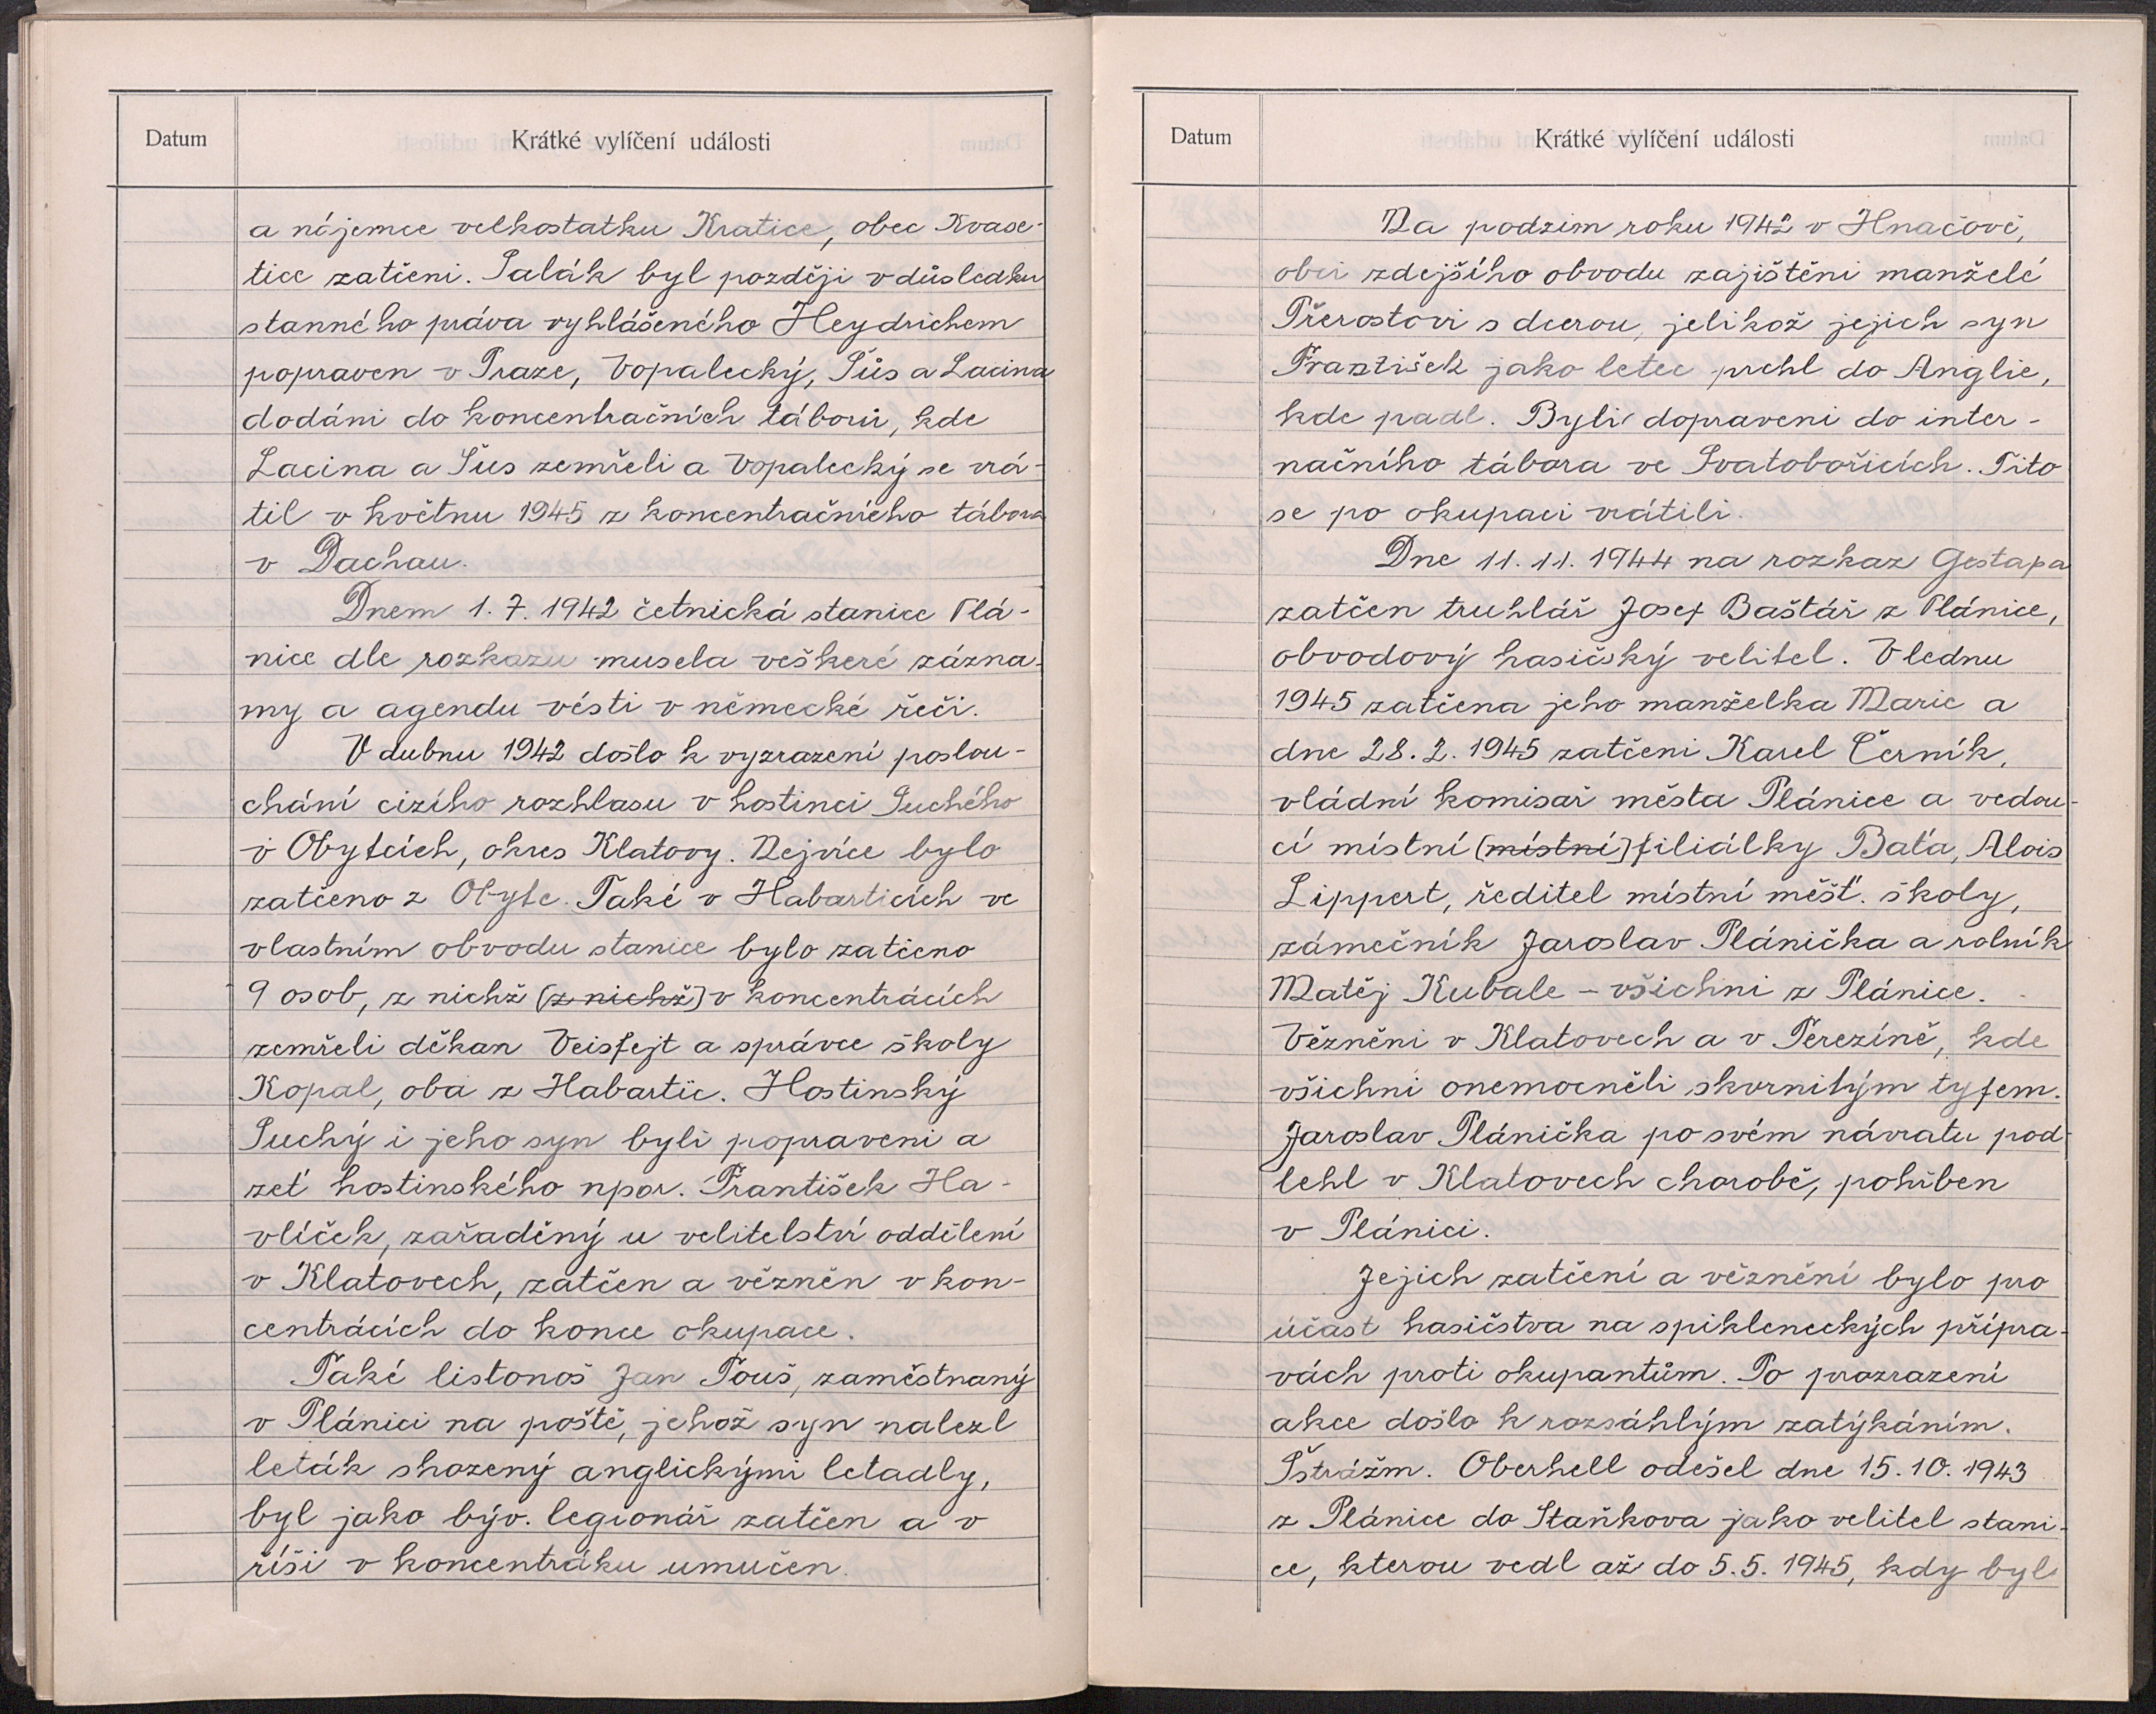 Datum
Krátké vylíčení události
a nájemce velkostatku Kratice, obec Kvase-
tice zatčeni. Salák byl později v důsledku
stanného práva vyhlášeného Heydrichem
popraven v Praze, Vopalecký, Šůs a Lacina
dodáni do koncentračních táborů, kde
Lacina a Šus zemřeli a Vopalecký se vrá-
til v květnu 1945 z koncentračního tábora
v Dachau.
Dnem 1. 7. 1942 četnická stanice Plá-
nice dle rozkazu musela veškeré zázna-
my a agendu vésti v německé řeči.
V dubnu 1942 došlo k vyzrazení poslou-
chání cizího rozhlasu v hostinci Suchého
v Obytcích, okres Klatovy. Nejvíce bylo
zatčeno z Obytc. Také v Habarticích ve
vlastním obvodu stanice bylo zatčeno
9 osob, z nichž (z nichž) v koncentrácích
zemřeli děkan Veisfejt a správce školy
Kopal, oba z Habartic. Hostinský
Suchý i jeho syn byli popraveni a
zeť hostinského npor. František Ha-
vlíček, zařaděný u velitelství oddělení
v Klatovech, zatčen a vězněn v kon-
centrácích do konce okupace.
Také listonoš Jan Touš, zaměstnaný
v Plánici na poště, jehož syn nalezl
leták shozený anglickými letadly,
byl jako býv. legionář zatčen a v
říši v koncentráku umučen.
Datum
Krátké vylíčení události
Na podzim roku 1942 v Hnačově,
obci zdejšího obvodu zajištěni manželé
Přerostovi s dcerou, jelikož jejich syn
František jako letec prchl do Anglie,
kde padl. Byli dopraveni do inter-
načního tábora ve Svatobořicích. Tito
se po okupaci vrátili.
Dne 11. 11. 1944 na rozkaz Gestapa
zatčen truhlář Josef Baštář z Plánice,
obvodový hasičský velitel. V lednu
1945 zatčena jeho manželka Marie a
dne 28. 2. 1945 zatčeni Karel Černík,
vládní komisař města Plánice a vedou-
cí místní (místní) filiálky Baťa, Alois
Lippert, ředitel místní měšť. školy,
zámečník Jaroslav Plánička a rolník
Matěj Kubale - všichni z Plánice.
Vězněni v Klatovech a v Terezíně, kde
všichni onemocněli skvrnitým tyfem.
Jaroslav Plánička po svém návratu pod-
lehl v Klatovech chorobě, pohřben
v Plánici.
Jejich zatčení a věznění bylo pro
účast hasičstva na spikleneckých přípra-
vách proti okupantům. Po prozrazení
akce došlo k rozsáhlým zatýkáním.
Pstrážm. Oberhell odešel dne 15. 10. 1943
z Plánice do Staňkova jako velitel stani-
ce, kterou vedl až do 5. 5. 1945, kdy byl